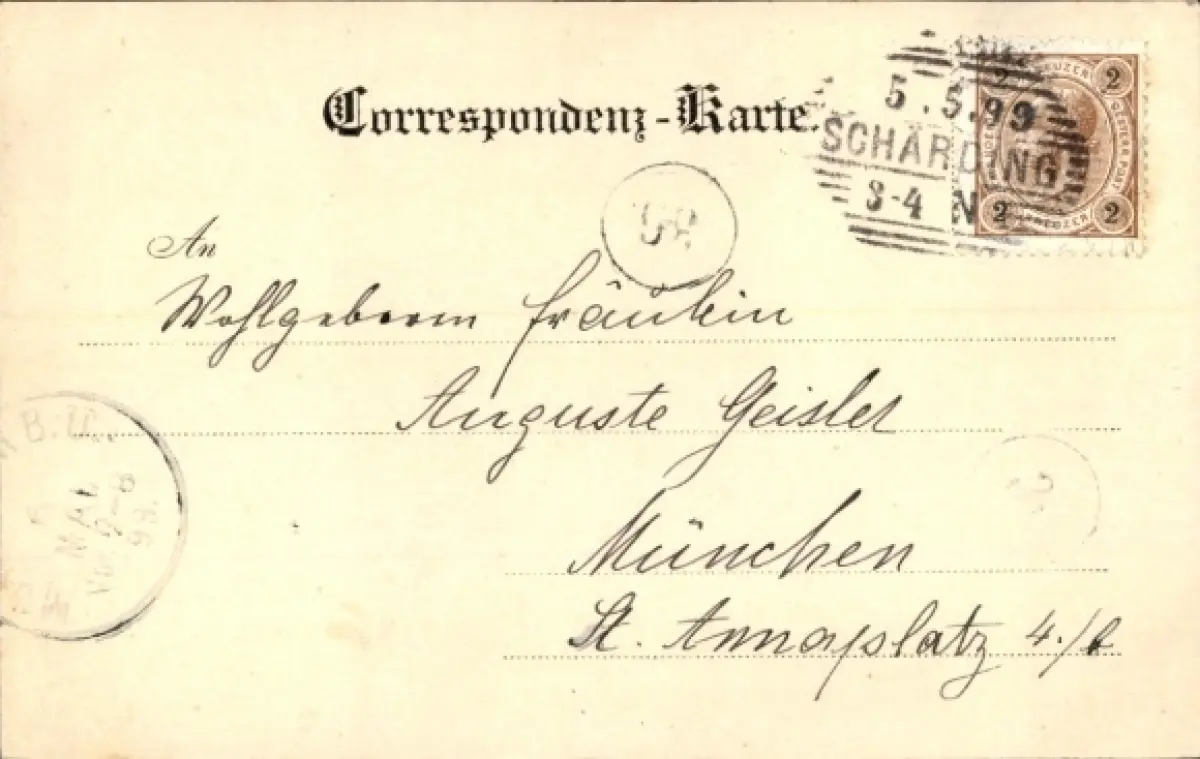 Correspondenz-Karte.
5.5.99
SCHÄRDING
3-4 N
2 KREUZER 2
2 KREUZER 2
An
Wohlgeborn Fräulein
Auguste Geisler
München
St. Annaplatz 4./
5
MAI